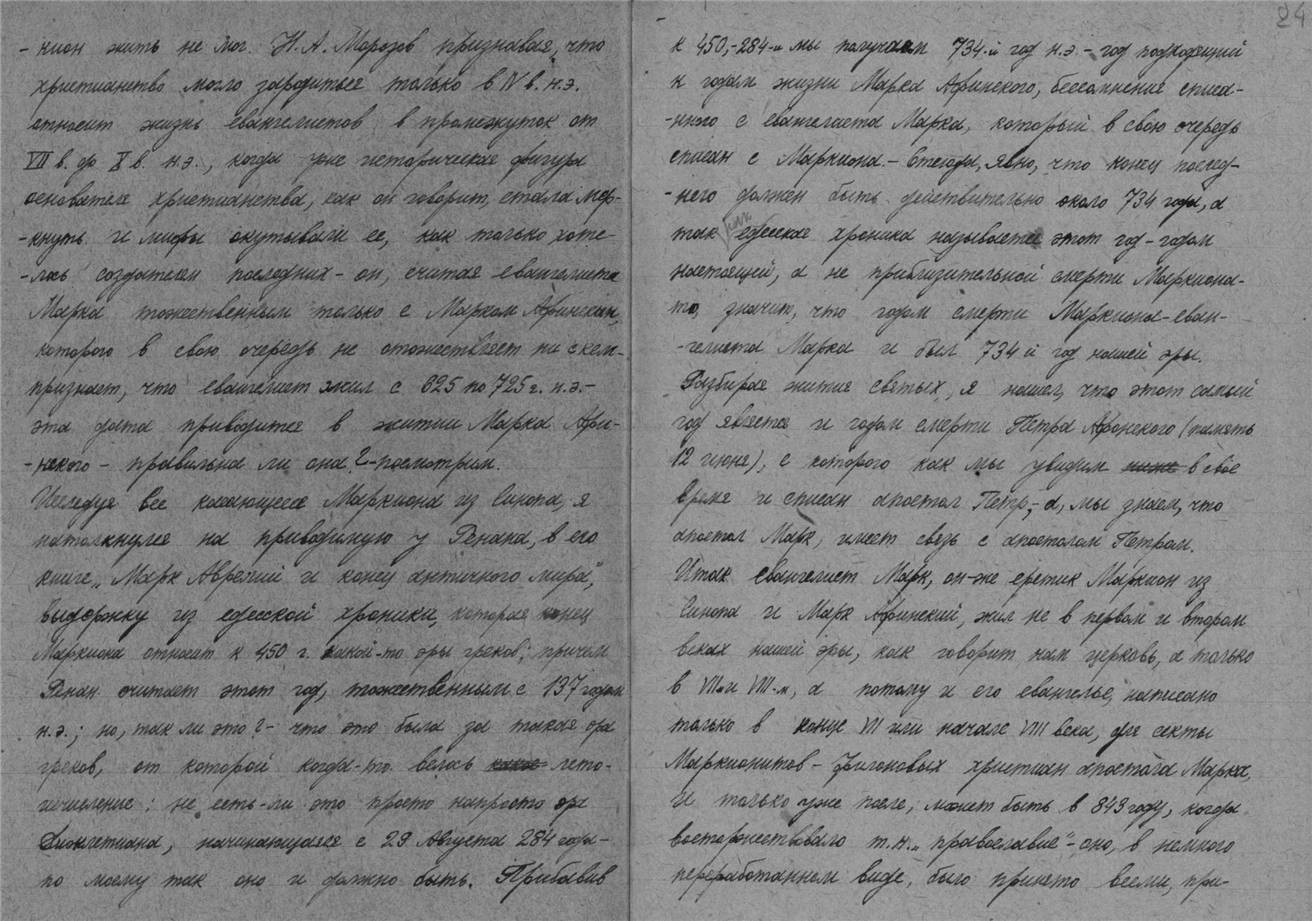 -нион жить не мог. Н.А. Морозов признавая, что
христианство могло зародиться только в IV в. н.э.
относит жизнь евангелистов в промежуток от
VII в. до X в. н.э., когда уже историческая фигура
основателя христианства, как он говорит, стала мер-
-кнуть и мифы окутывали ее, как только хоте-
-лось создателям последних - он, считая евангелиста
Марка тожественным только с Марком Афинским,
которого в свою очередь не отожествляет ни с кем-
признает, что евангелист жил с 625 по 725 г. н.э.-
эта дата приводится в житии Марка Афи-
-нского - правильна ли она?-посмотрим.
Исследуя все касающееся Маркиона из Синопа, я
натолкнулся на приводимую у Ренана, в его
книге „Марк Аврелий и конец античного мира",
выдержку из едесской хроники, которая конец
Маркиона относит к 450 г. какой-то эры греков; причем
Ренан считает этот год, тожественным с 137 годом
н.э.; но, так ли это?- что это была за такая эра
греков, от которой когда-то велось лето-
исчисление; не есть-ли это просто напросто эра
Диоклетиана, начинающаяся с 29 Августа 284 года-
по моему так оно и должно быть. Прибавив
24
к 450,-284-и мы получаем 734-й год н.э.- год подходящий
к годам жизни Марка Афинского, бессомнения списа-
-нного с евангелиста Марка, который в свою очередь
списан с Маркиона.- Отсюда, явно, что конец послед-
-него должен быть действительно около 734 года, а
так как едесская хроника называет этот год-годом
настоящей, а не приблизительной смерти Маркиона-
то, значит, что годом смерти Маркиона-еван-
-гелиста Марка и был 734 й год нашей эры.
Разбирая жития святых, я нашел, что этот самый
год является и годом смерти Петра Афонского (память
12 июня), с которого как мы увидим ниже в свое
время и списан апостол Петр,- а, мы знаем, что
апостол Марк, имеет связь с апостолом Петром.
Итак евангелист Марк, он-же еретик Маркион из
Синопа и Марк Афинский, жил не в первом и втором
веках нашей эры, как говорит нам церковь, а только
в VII-м и VIII-м, а потому и его евангелье, написано
только в конце VII или начале VIII века, для секты
Маркионитов - христиан апостола Марка,
и только уже после, может быть в 843 году, когда
восторжествовало т.н. „православие"-оно, в немного
переработанном виде, было принято всеми, при-